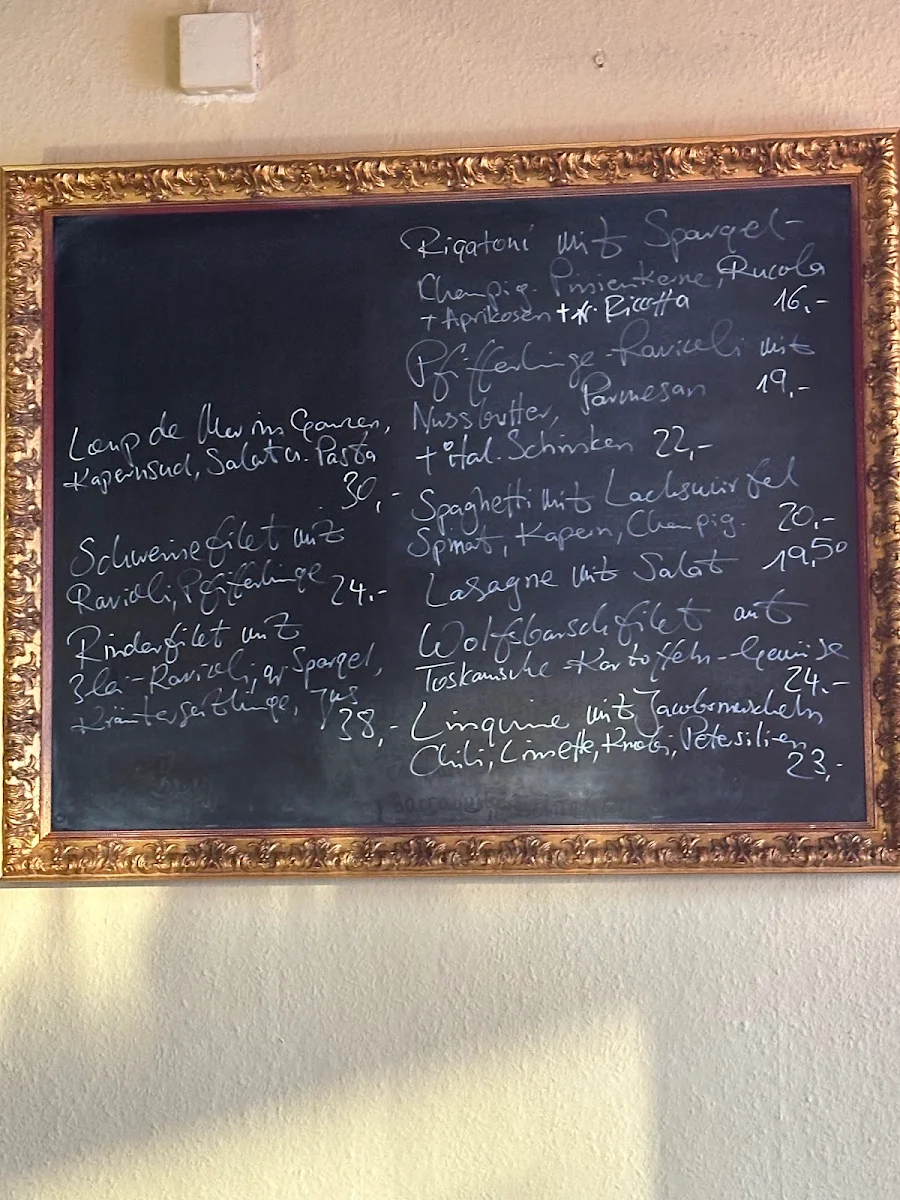 Loup de Mer im Ganzen,
Kapernsud, Salat u. Pasta
30,-
Schweinefilet mit
Ravioli, Pfifferlinge 24.-
Rinderfilet mit
3lei-Ravioli, gr Spargel,
Kräuterseitlinge, Jus
38,-
Rigatoni mit Spargel-
Champig. Pinienkerne, Rucola
+ Aprikosen + fr. Ricotta 16,-
Pfifferlinge-Ravioli mit
Nussbutter, Parmesan 19,-
+ ital. Schinken 22,-
Spaghetti mit Lachswürfel
Spinat, Kapern, Champig. 20,-
Lasagne mit Salat 19,50
Wolfsbarschfilet auf
Toskanische-Kartoffeln-Gemüse
24.-
Linguine mit Jacobsmuscheln
Chili, Limette, Knobi, Petersilien
23,-